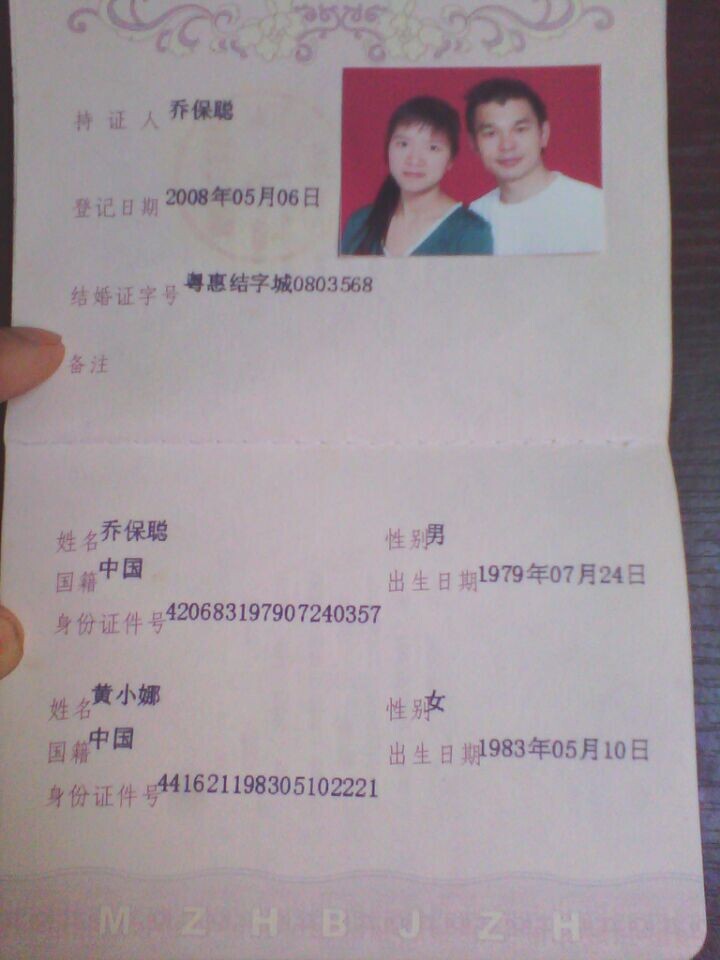 持证人 乔保聪
登记日期 2008年05月06日
结婚证字号 粤惠结字城0803568
备注
姓名 乔保聪 性别 男
国籍 中国 出生日期 1979年07月24日
身份证件号 420683197907240357
姓名 黄小娜 性别 女
国籍 中国 出生日期 1983年05月10日
身份证件号 441621198305102221
MZHBJZH